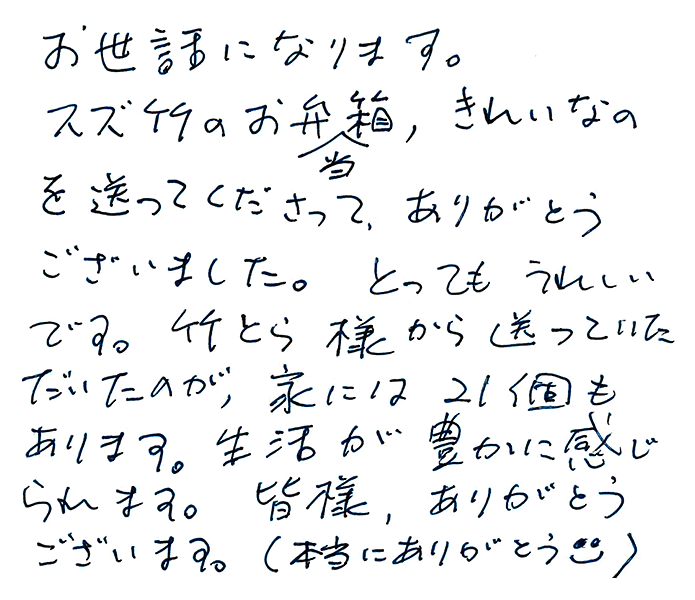 お世話になります。
スズ竹のお弁当箱, きれいなの
を送ってくださって、ありがとう
ございました。 とっても うれしい
です。竹とら 様から送っていた
だいたのが, 家には 21個も
あります。生活が 豊かに感じ
られます。 皆様, ありがとう
ございます。(本当にありがとう)